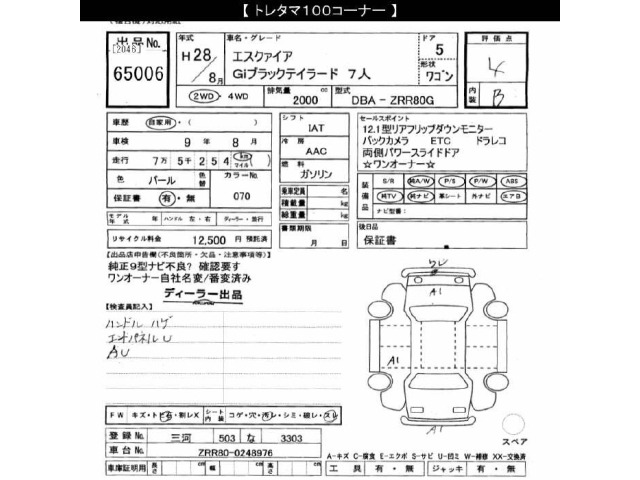 【 トレタマ100コーナー 】
出品No.
[2046]
65006
年式
H28/8月
車名・グレード
エスクァイア
Giブラックテイラード 7人
ドア
5
形状
ワゴン
評価点
4
内装
B
2WD・4WD
排気量
2000
cc
型式
DBA - ZRR80G
車歴
自家用・( )
車検
9 年 8 月
走行
7万 5千 254 km マイル
色
パール
色替
カラーNo.
070
保証書
有・無
モデル年式
年
ハンドル 左・右
ディーラー・並行
リサイクル料金
12,500 円 預託済
シフト
IAT
冷房
AAC
燃料
ガソリン
乗車定員
名
積載量
kg
総重量
kg
書類期限
月 日
セールスポイント
12.1型リアフリップダウンモニター
バックカメラ ETC ドラレコ
両側パワースライドドア
☆ワンオーナー☆
装備品
S/R 純A/W P/S P/W ABS
純TV 純ナビ 革シート 外ナビ エアB
ナビ型番:
後日品
保証書
【出品店申告欄(不良箇所・欠品・注意事項等)】
純正9型ナビ不良? 確認要す
ワンオーナー自社名変/番変済み
ディーラー出品
【検査員記入】
ハンドル ハゲ
エンドパネルU
AU
A1
A1
A1
スペア
FW
キズ・トビ石・割レX
シート内装
コゲ・穴・汚レ・シミ・破レ・スレ
登録No.
三河 503 な 3303
車台No.
ZRR80-0248976
車庫証明用
長さ cm
幅 cm
高さ cm
A-キズ C-腐食 E-エクボ S-サビ U-凹ミ W-補修 XX-交換済
工具 有・無
ジャッキ 有・無